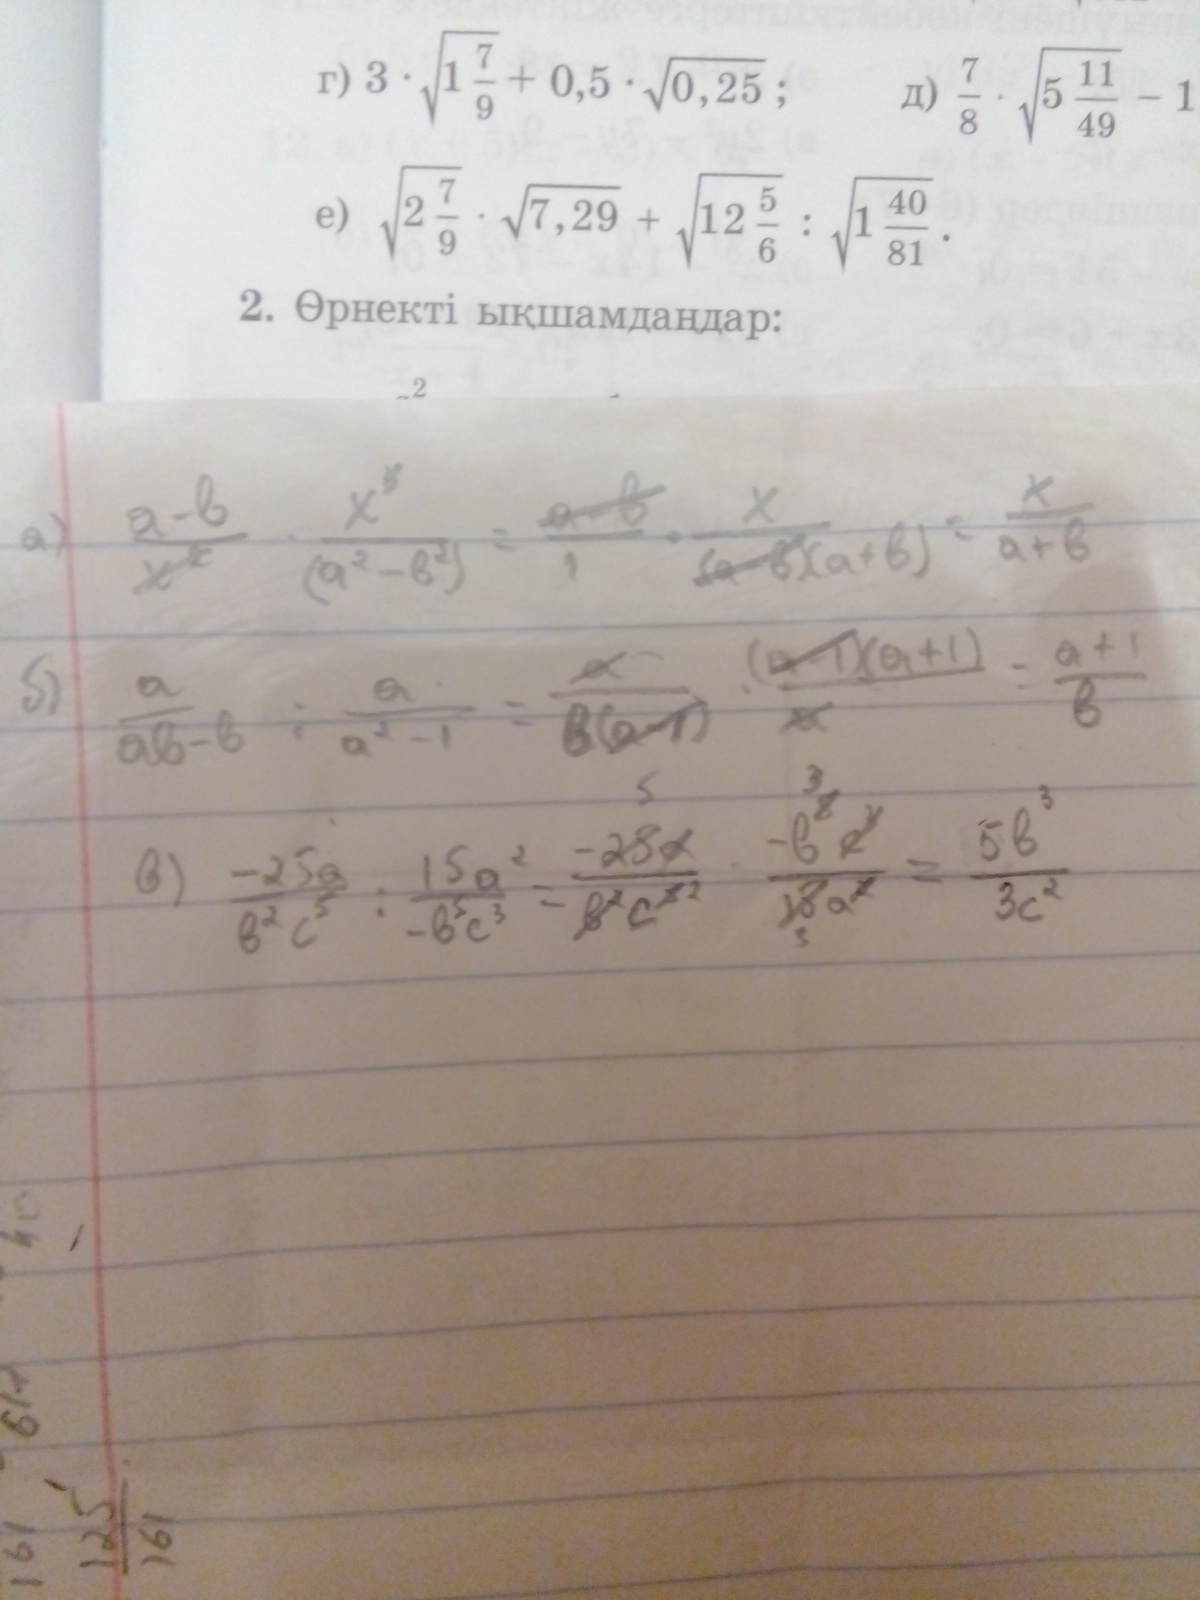 г) 3 · √(1 7/9) + 0,5 · √(0,25) ; д) 7/8 · √(5 11/49) − 1
е) √(2 7/9) · √(7,29) + √(12 5/6) : √(1 40/81) .
2. Өрнекті ықшамдаңдар:
а) (a-b)/x² · x³/(a²-b²) = (a-b)/1 · x/((a-b)(a+b)) = x/(a+b)
б) a/(ab-b) : a/(a²-1) = a/(b(a-1)) · ((a-1)(a+1))/a = (a+1)/b
в) -25a/(b²c⁵) : 15a²/(-b⁵c³) = -25a/(b²c⁵ ²) · (-b⁵ ³c³)/(15a²) = 5b³/(3c²)
125/161
161